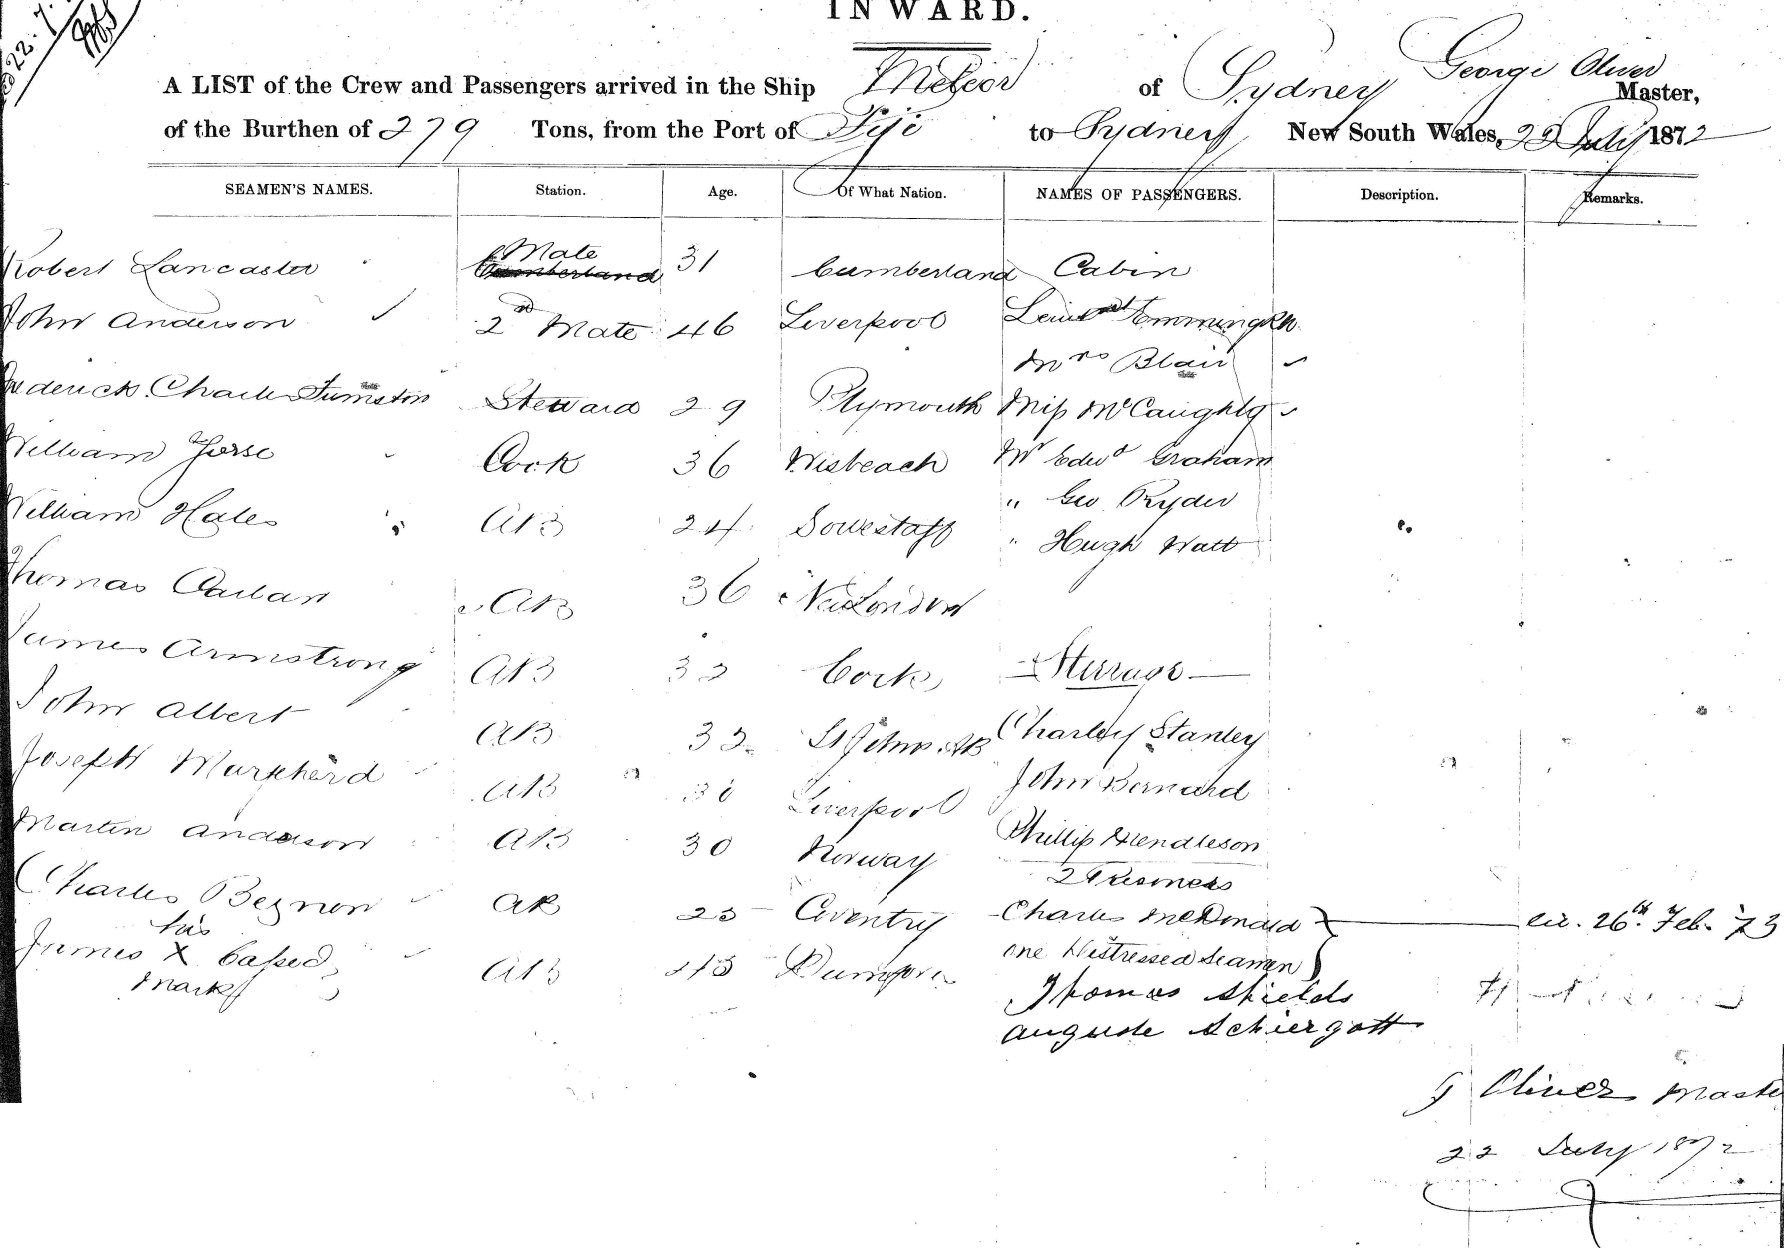 22.7.
INWARD.
A LIST of the Crew and Passengers arrived in the Ship Meteor of Sydney George Oliver Master,
of the Burthen of 279 Tons, from the Port of Fiji to Sydney New South Wales, 22 July 1872
SEAMEN'S NAMES. Station. Age. Of What Nation. NAMES OF PASSENGERS. Description. Remarks.
Robert Lancaster Mate 31 Cumberland Cabin
John Anderson 2nd Mate 46 Liverpool Lieut
Mrs Blair
Frederick Charles Steward 29 Plymouth Miss McCaughty
William Cook 36 Wisbeach Mr Edwd Graham
" Geo Ryder
William Hales AB 24 Lowestoff
" Hugh Watt
Thomas AB 36 New London
James Armstrong AB Cork Sterrage
John Albert AB St Johns. NB Charley Stanley
Joseph AB Liverpool John Bernard
Martin Anderson AB 30 Norway Phillip Hendleson
2 Prisoners
Charles Beynon AB Coventry Charles McDonald cir. 26th. Feb. 73
his
James X AB one Distressed Seamen
mark
Thomas Shields
Auguste Schiergott
G Oliver Master
22 July 1872